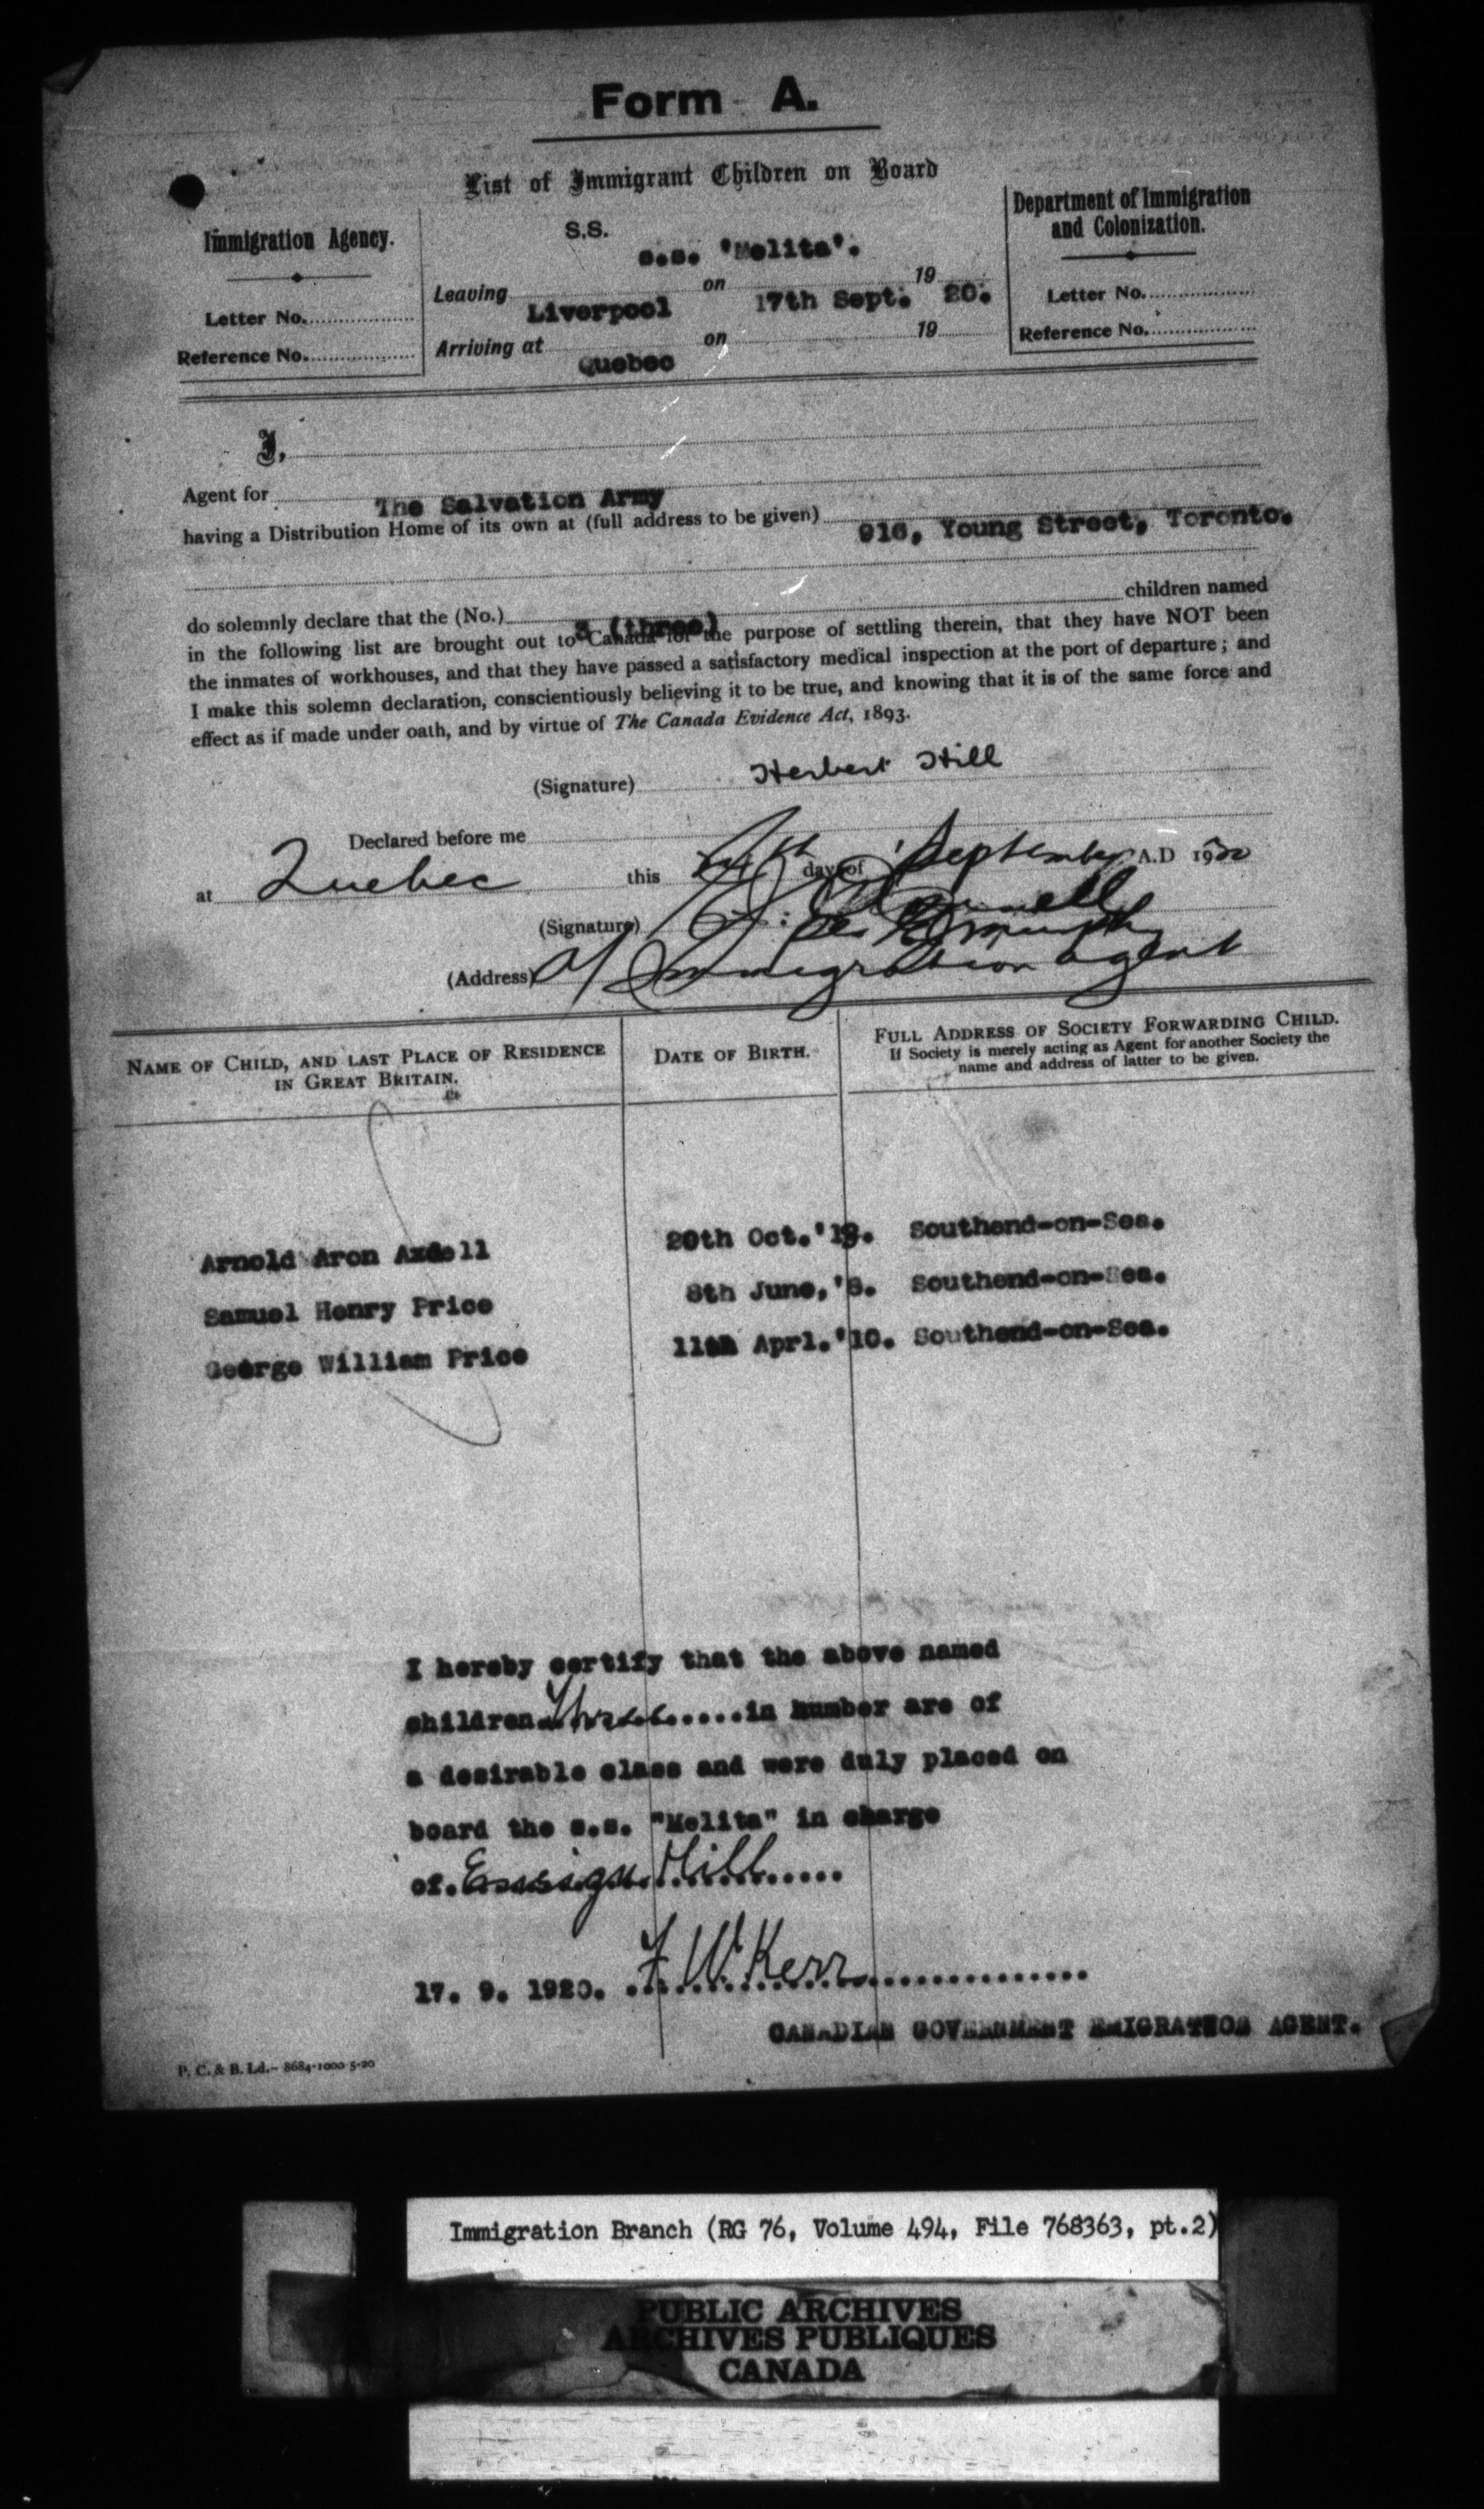 Form A.
List of Immigrant Children on Board
Immigration Agency.
Letter No.
Reference No.
S.S.
s.s. 'Melita'.
Leaving Liverpool on 17th Sept. 1920.
Arriving at Quebec on 19
Department of Immigration
and Colonization.
Letter No.
Reference No.
I,
Agent for The Salvation Army
having a Distribution Home of its own at (full address to be given) 916, Young Street, Toronto.
do solemnly declare that the (No.) 3 (three) children named
in the following list are brought out to Canada for the purpose of settling therein, that they have NOT been
the inmates of workhouses, and that they have passed a satisfactory medical inspection at the port of departure; and
I make this solemn declaration, conscientiously believing it to be true, and knowing that it is of the same force and
effect as if made under oath, and by virtue of The Canada Evidence Act, 1893.
(Signature) Herbert Hill
Declared before me
at Quebec this day of September A.D 1920
(Signature)
(Address) Immigration agent
NAME OF CHILD, AND LAST PLACE OF RESIDENCE
IN GREAT BRITAIN.
DATE OF BIRTH.
FULL ADDRESS OF SOCIETY FORWARDING CHILD.
If Society is merely acting as Agent for another Society the
name and address of latter to be given.
Arnold Aron Axdell 20th Oct. Southend-on-Sea.
Samuel Henry Price 8th June, Southend-on-Sea.
George William Price 11th Aprl.'10. Southend-on-Sea.
I hereby certify that the above named
children Three.....in number are of
a desirable class and were duly placed on
board the s.s. "Melita" in charge
of. Ensign Hill.....
17. 9. 1920. F W Kerr...............
CANADIAN GOVERNMENT EMIGRATION AGENT.
P. C. & B. Ld.- 8684-1000-5-20
Immigration Branch (RG 76, Volume 494, File 768363, pt.2)
PUBLIC ARCHIVES
ARCHIVES PUBLIQUES
CANADA